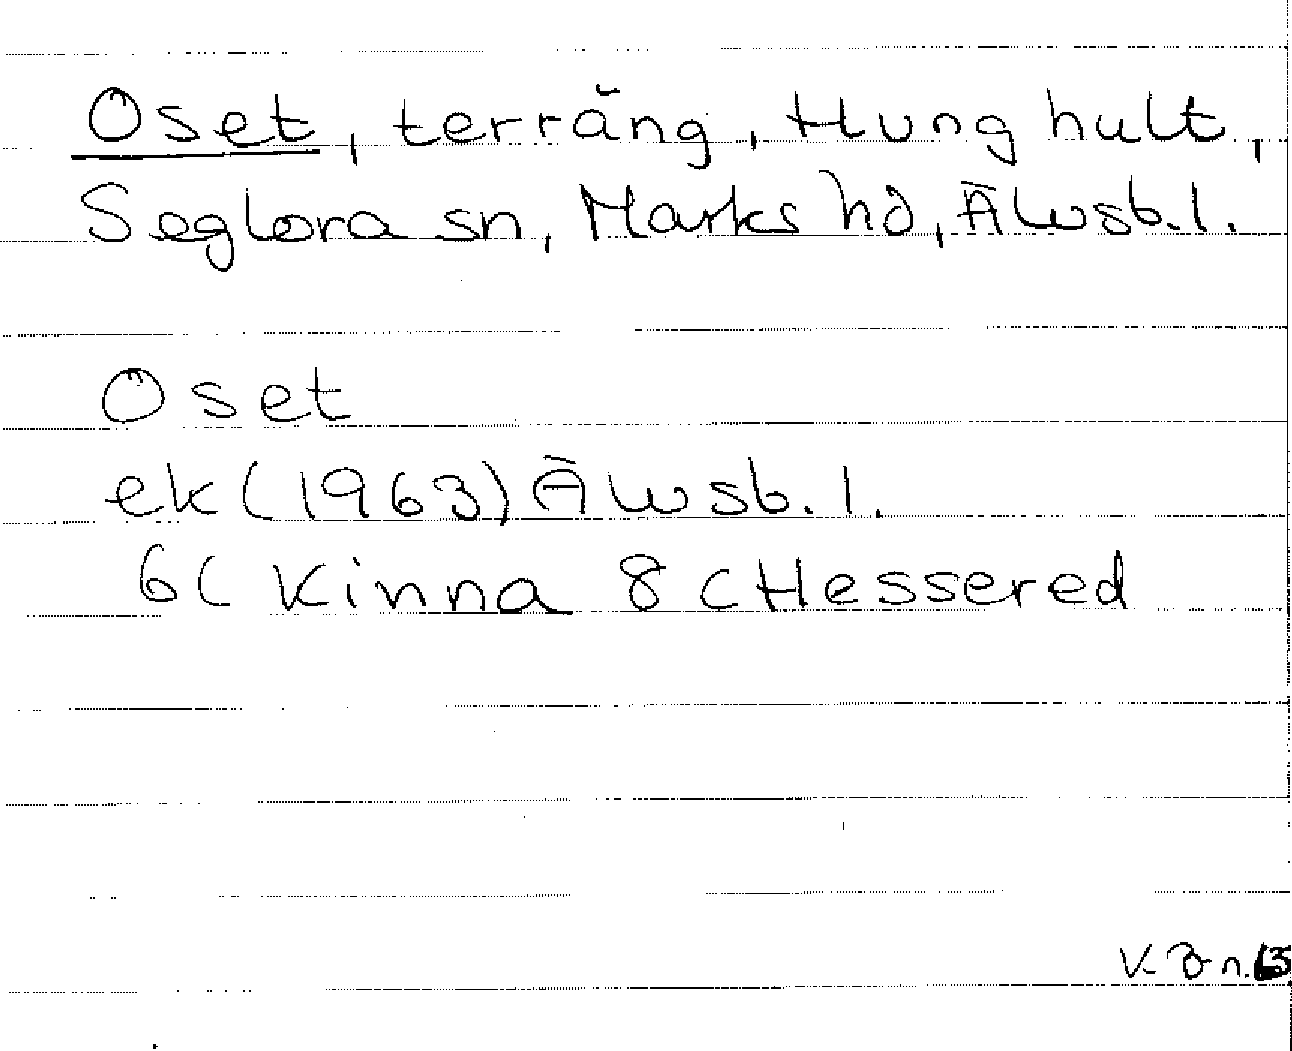 Öset, terräng, Hunghult,
Seglora sn, Marks hd, Älvsb.l.
Öset
ek (1963) Älvsb.l.
6C Kinna 8c Hessered